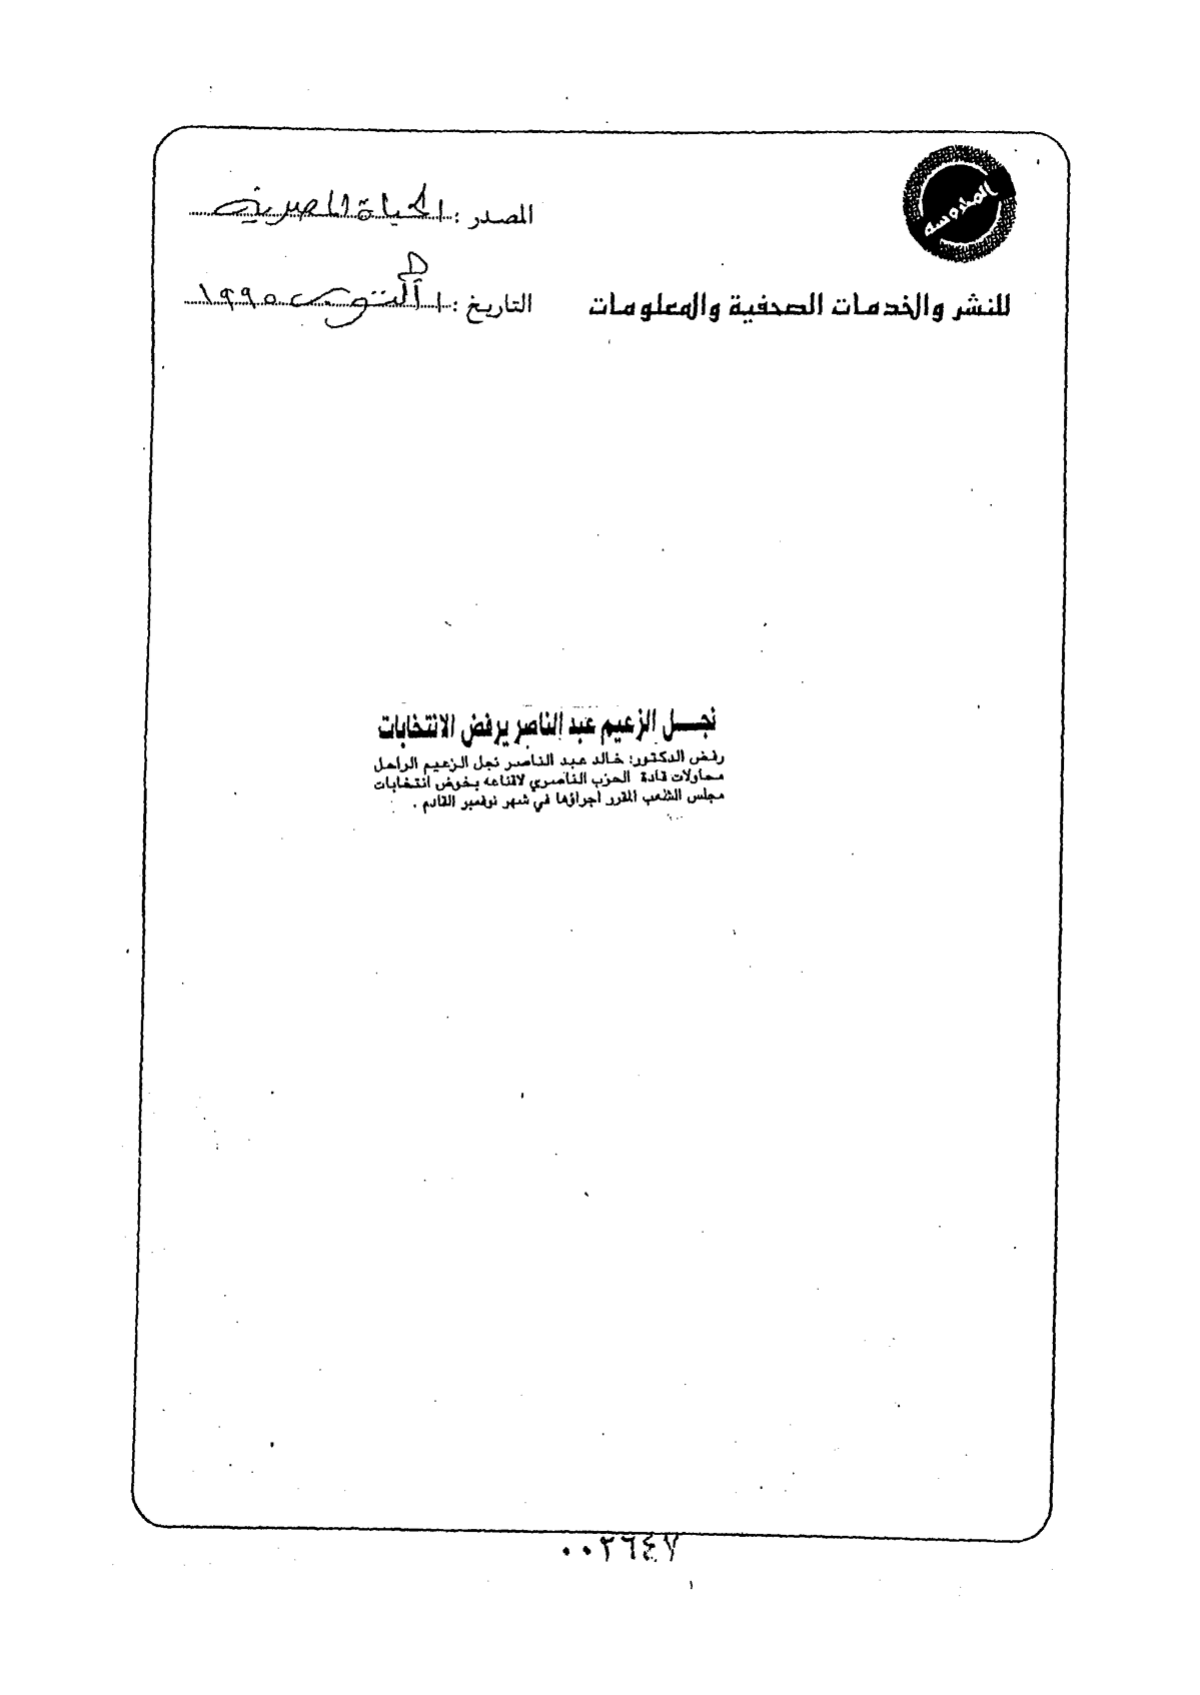 المحروسة
المصدر : الحياة المصرية
للنشر والخدمات الصحفية والمعلومات
التاريخ : أكتوبر ١٩٩٥
نجـــل الزعيم عبد الناصر يرفض الانتخابات
رفض الدكتور: خالد عبد الناصر نجل الزعيم الراحل
محاولات قادة الحزب الناصري لاقناعه بخوض انتخابات
مجلس الشعب المقرر اجراؤها في شهر نوفمبر القادم .
٠٠٢٦٤٧